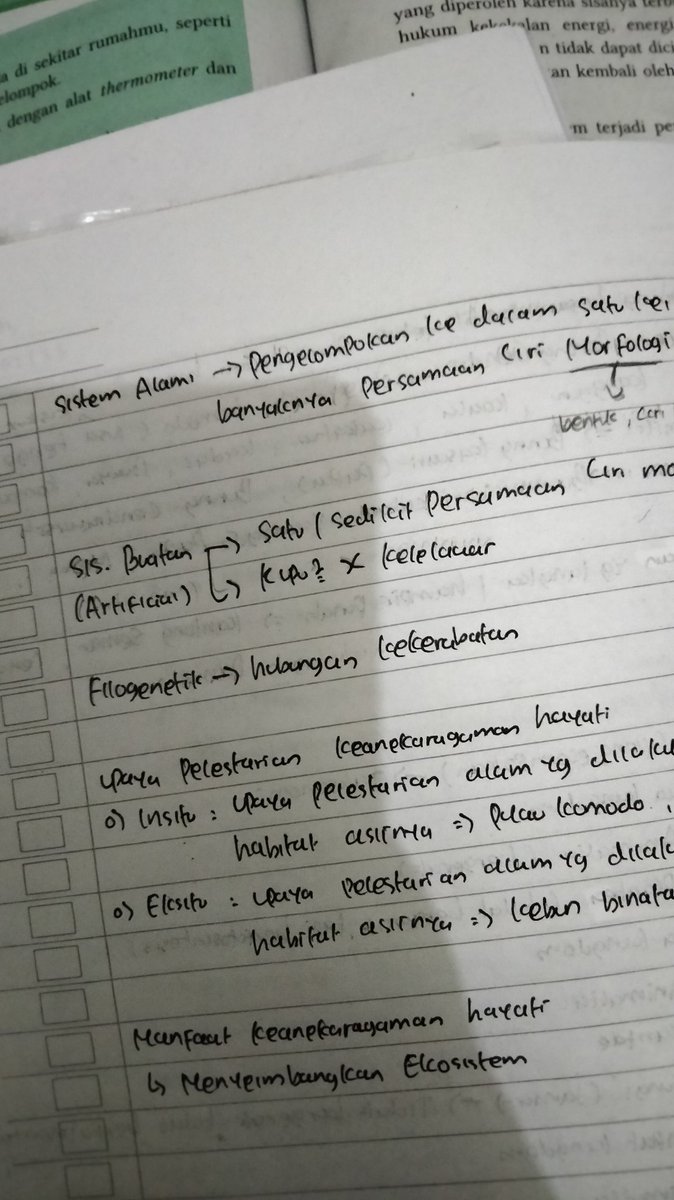 a di sekitar rumahmu, seperti
elompok.
dengan alat thermometer dan
yang diperoleh karena sisanya
hukum kekekalan energi, energi
n tidak dapat dici
an kembali oleh
m terjadi pe
Sistem Alami → Pengelompokan ke dalam satu
banyaknya persamaan ciri Morfologi
bentuk, ciri
Sis. Buatan → satu / sedikit persamaan ciri mo
(Artificial) ↳ x kelelawar
Filogenetik → hubungan kekerabatan
upaya pelestarian keanekaragaman hayati
o) Insitu : upaya pelestarian alam yg dilaku
habitat aslinya => pulau komodo,
o) Eksitu : upaya pelestarian alam yg dilak
habitat aslinya => kebun binata
Manfaat keanekaragaman hayati
↳ Menyeimbangkan Ekosistem